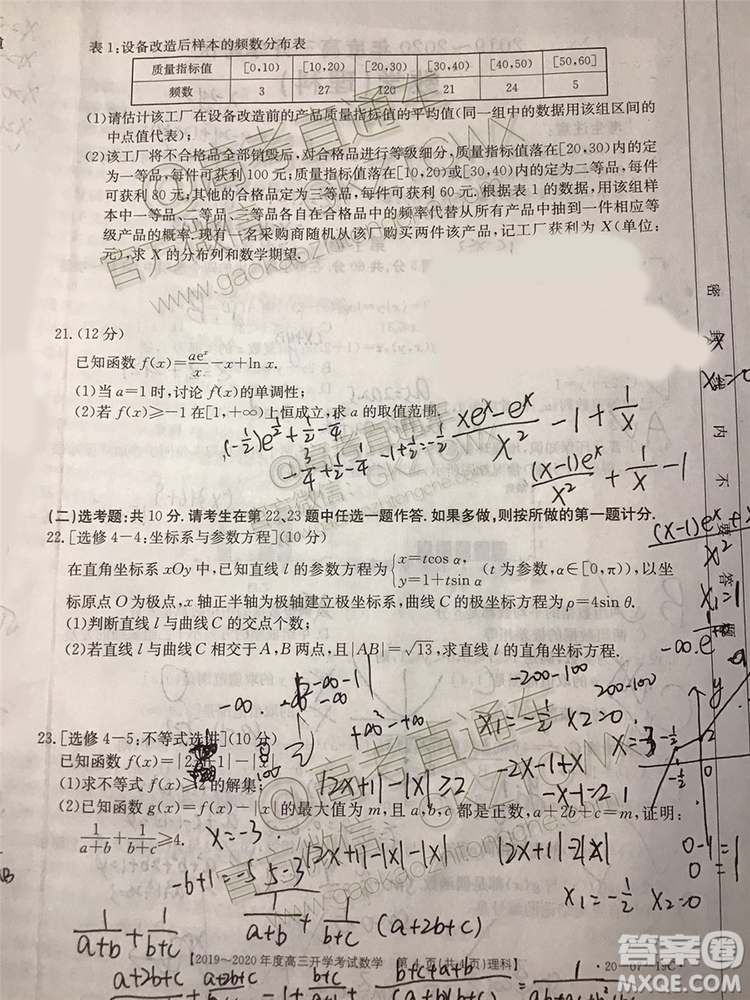 表1:设备改造后样本的频数分布表
质量指标值 [0,10) [10,20) [20,30) [30,40) [40,50) [50,60]
频数 3 27 120 21 24 5
(1)请估计该工厂在设备改造前的产品质量指标值的平均值(同一组中的数据用该组区间的
中点值代表);
(2)该工厂将不合格品全部销毁后,对合格品进行等级细分,质量指标值落在[20,30)内的定
为一等品,每件可获利100元;质量指标值落在[10,20)或[30,40)内的定为二等品,每件
可获利80元;其他的合格品定为三等品,每件可获利60元.根据表1的数据,用该组样
本中一等品、二等品、三等品各自在合格品中的频率代替从所有产品中抽到一件相应等
级产品的概率.现有一名采购商随机从该厂购买两件该产品,记工厂获利为X(单位:
元),求X的分布列和数学期望.
21.(12分)
已知函数f(x)=ae^x/x-x+ln x.
(1)当a=1时,讨论f(x)的单调性;
(2)若f(x)≥-1在[1,+∞)上恒成立,求a的取值范围.
(xe^x-e^x)/x²-1+1/x
(x-1)e^x/x²+1/x-1
(二)选考题:共10分.请考生在第22、23题中任选一题作答.如果多做,则按所做的第一题计分.
22.[选修4-4:坐标系与参数方程](10分)
在直角坐标系xOy中,已知直线l的参数方程为{x=tcos α, y=1+tsin α (t为参数,α∈[0,π)),以坐
标原点O为极点,x轴正半轴为极轴建立极坐标系,曲线C的极坐标方程为ρ=4sin θ.
(1)判断直线l与曲线C的交点个数;
(2)若直线l与曲线C相交于A,B两点,且|AB|=√13,求直线l的直角坐标方程.
-200-100
200-100
x₁=-1/2 x₂=0
23.[选修4-5:不等式选讲](10分)
已知函数f(x)=|2x+1|-|x|
(1)求不等式f(x)≥2的解集;
|2x+1|-|x|≥2
-2x-1+x
-x-1=2
(2)记函数g(x)=f(x)-|x|的最大值为m,且a,b,c都是正数,a+2b+c=m,证明:
1/(a+b)+1/(b+c)≥4.
x=-3
-6+1=-5 5-3
|2x+1|-|x|-|x|
|2x+1|-2|x|
x₁=-1/2 x₂=0
1/(a+b)+1/(b+c)
1/(a+b)+1/(b+c) (a+2b+c)
【2019~2020年度高三开学考试数学 第4页(共4页)理科】
·20-07-19C·
密
封
内
不
答
答案圈
MXQE.COM
@高考直通车
官方微信:GKZTCWX
www.gaokaozhitongche.com